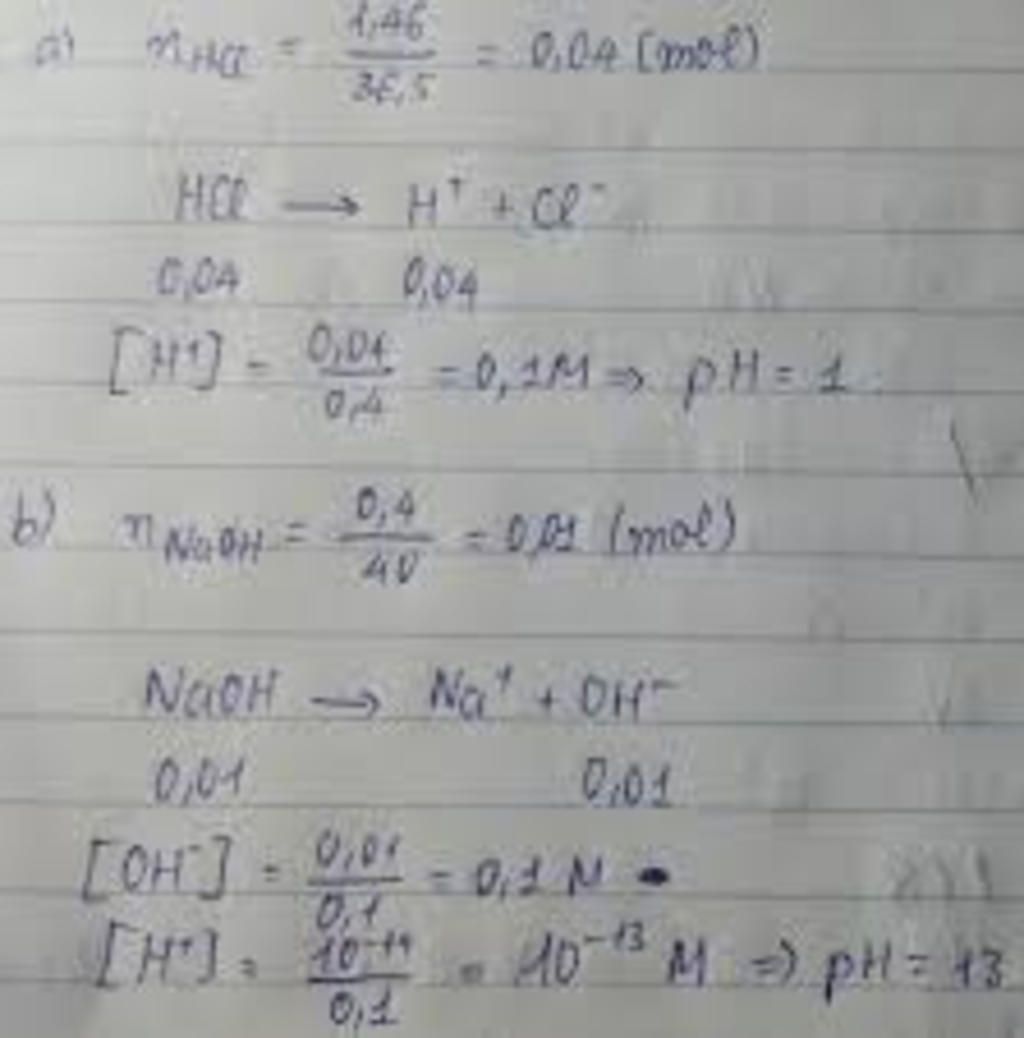 a) nHCl = 1,46/36,5 = 0,04 (mol)
HCl → H⁺ + Cl⁻
0,04 0,04
[H⁺] = 0,04/0,4 = 0,1M ⇒ pH = 1
b) nNaOH = 0,4/40 = 0,01 (mol)
NaOH → Na⁺ + OH⁻
0,01 0,01
[OH⁻] = 0,01/0,1 = 0,1 M
[H⁺] = 10⁻¹⁴/0,1 = 10⁻¹³ M ⇒ pH = 13